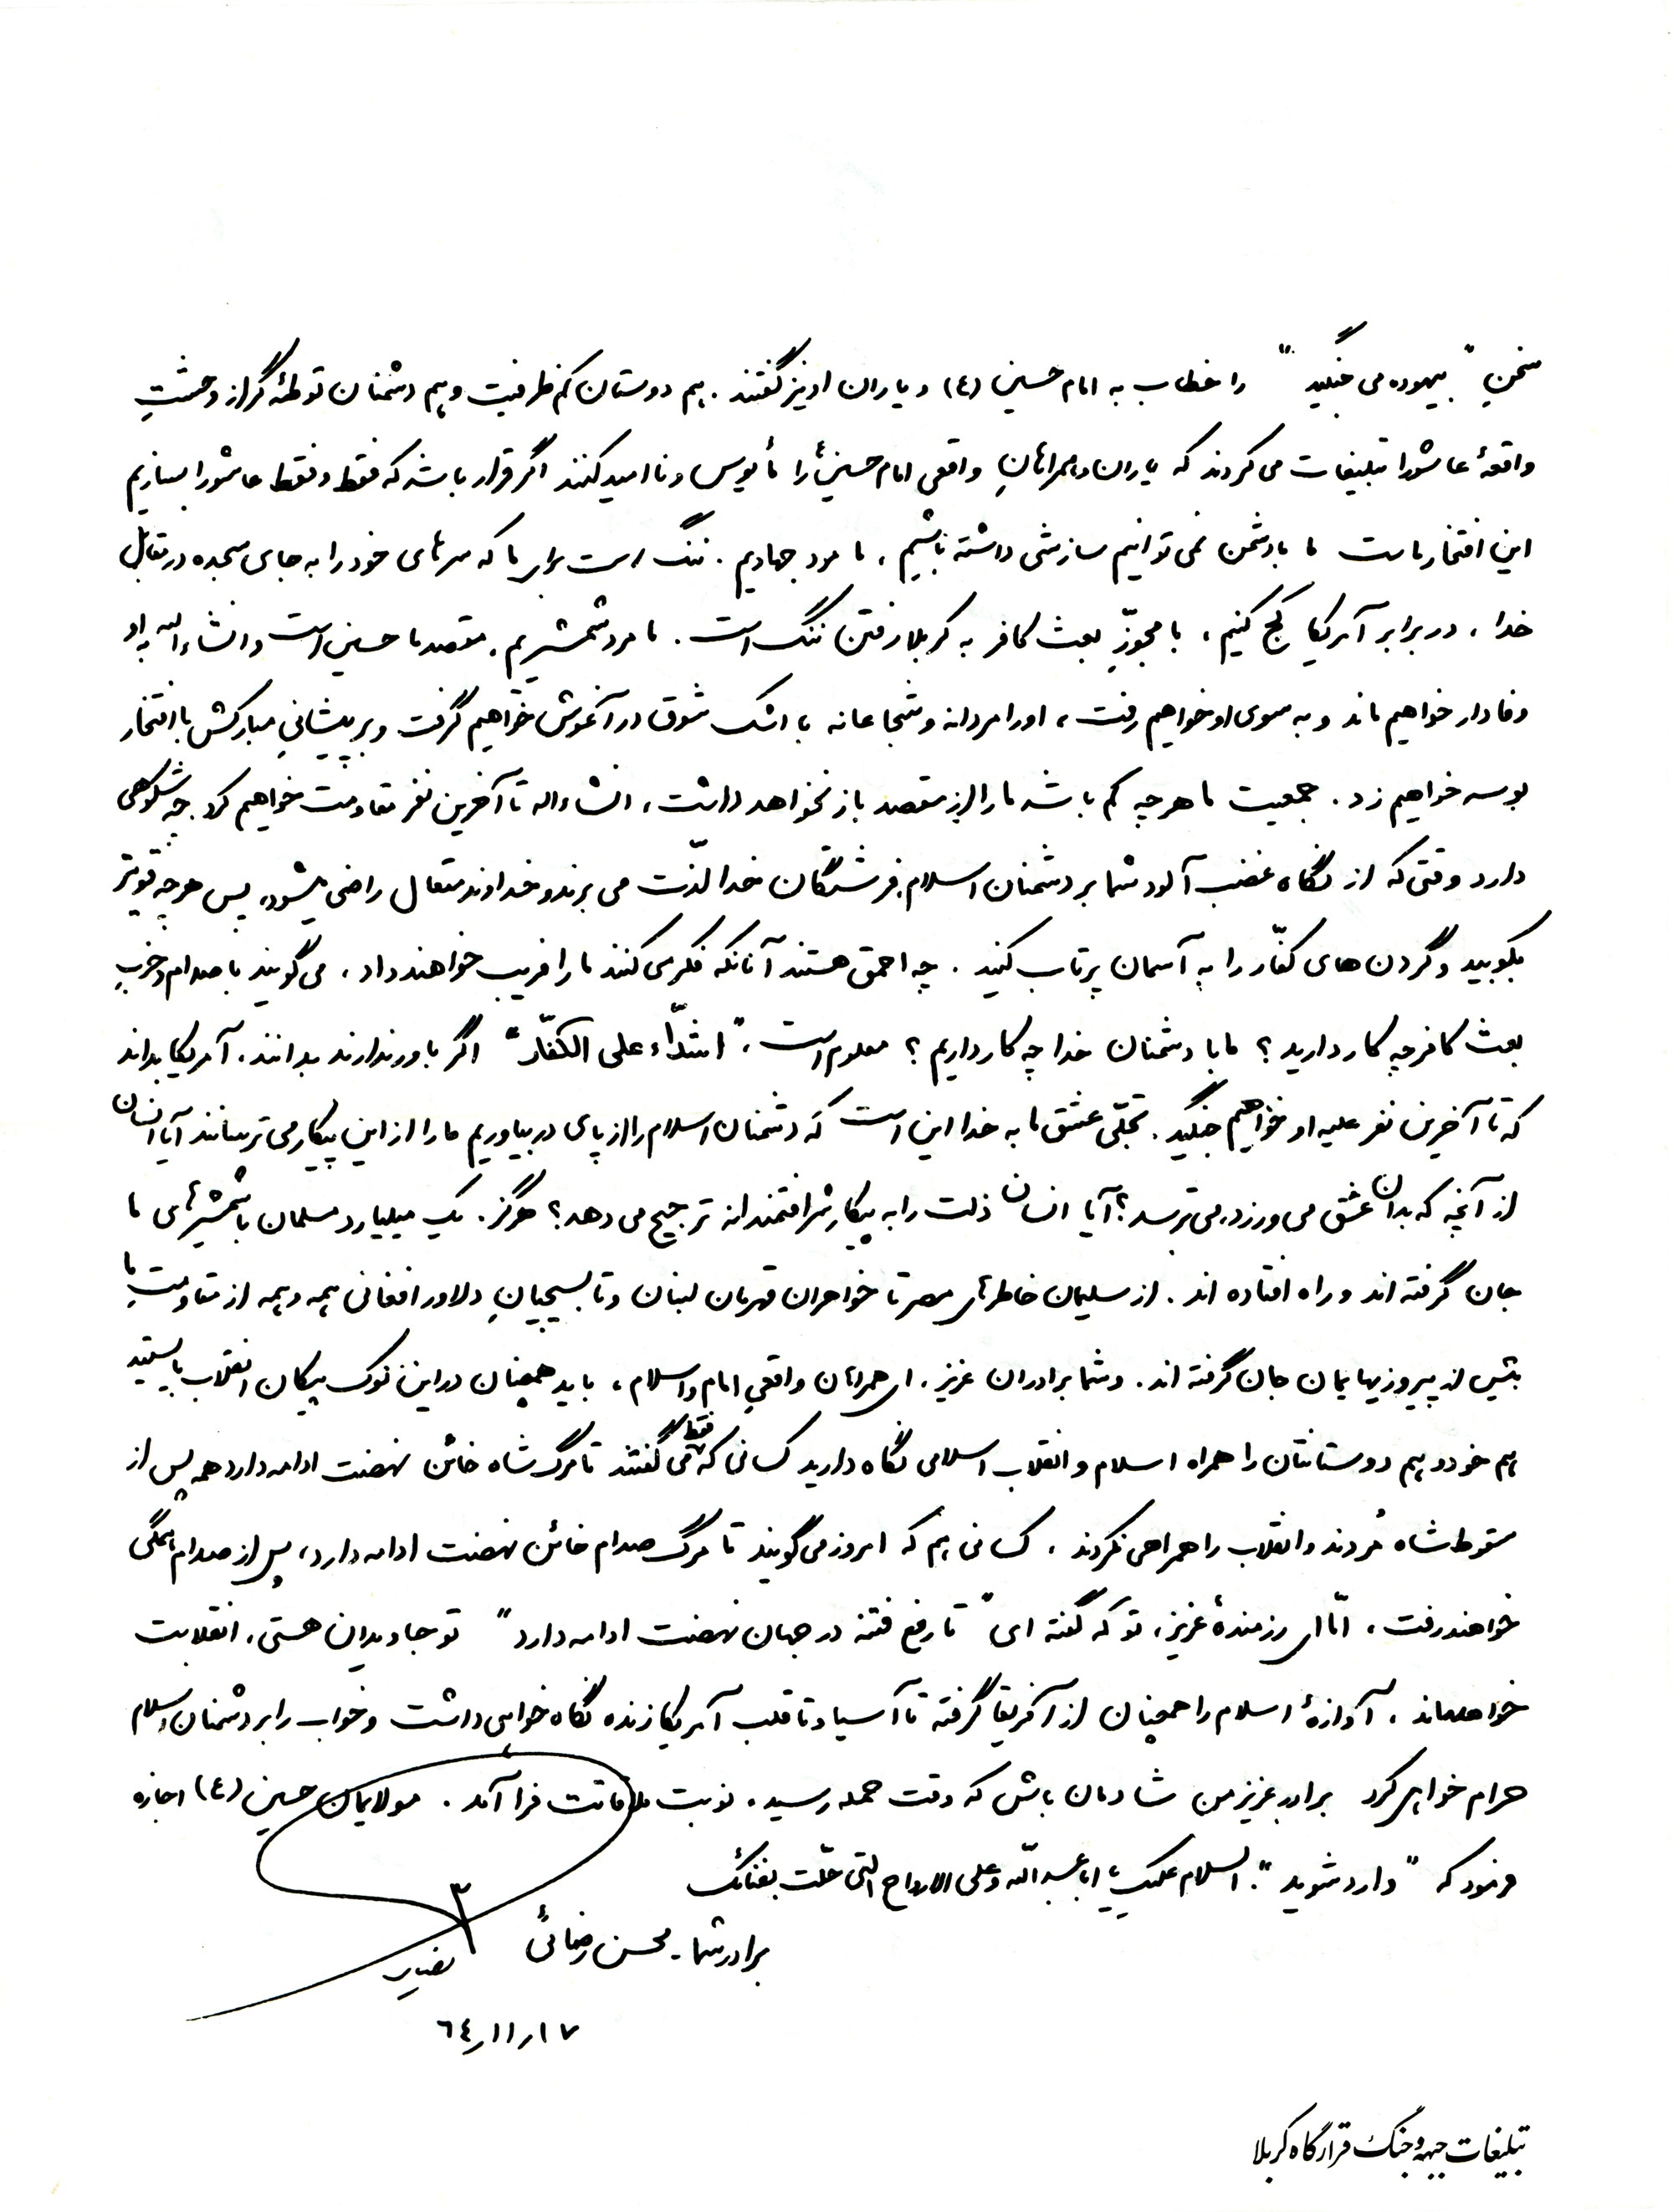 سخنِ "بیهوده می جنگید" را خطاب به امام حسین (ع) و یاران او نیز گفتند. هم دوستان کم ظرفیت و هم دشمنان توطئه گر از وحشتِ
واقعهٔ عاشورا تبلیغات می کردند که یاران و همراهانِ واقعی امام حسین ع را مأیوس و ناامید کنند اگر قرار باشد که فقط و فقط عاشورا بسازیم
این افتخار ماست ما با دشمن نمی توانیم سازشی داشته باشیم، ما مرد جهادیم. ننگ است برای ما که سرهای خود را به جای سجده در مقابل
خدا، در برابر آمریکا کج کنیم، با مجوّزِ بعث کافر به کربلا رفتن ننگ است. ما مرد شمشیریم. مقصد ما حسین است و انشاءاله به او
وفادار خواهیم ماند و به سوی او خواهیم رفت، او را مردانه و شجاعانه با اشک شوق در آغوش خواهیم گرفت و بر پیشانیِ مبارکش با افتخار
بوسه خواهیم زد. جمعیت ما هر چه کم باشد ما را از مقصد باز نخواهد داشت، انشاءاله تا آخرین نفر مقاومت خواهیم کرد. چه شکوهی
دارد وقتی که از نگاه غضب آلود شما بر دشمنان اسلام، فرشتگان خدا لذّت می برند و خداوند متعال راضی میشود، پس هر چه قویتر
بکوبید و گردن های کفّار را به آسمان پرتاب کنید. چه احمق هستند آنانکه فکر می کنند ما را فریب خواهند داد، می گویند با صدام و حزبِ
بعث کافر چه کار دارید؟ ما با دشمنان خدا چه کار داریم؟ معلوم است، "اشدّاء علی الکفّار" اگر باور ندارند بدانند. آمریکا بداند
که تا آخرین نفر علیه او خواهیم جنگید. تجلّی عشق ما به خدا این است که دشمنان اسلام را از پای در بیاوریم ما را از این پیکار می ترسانند آیا انسان
از آنچه که بدان عشق می ورزد، می ترسد؟ آیا انسان ذلت را به پیکار شرافتمندانه ترجیح می دهد؟ هرگز. یک میلیارد مسلمان با شمشیرهای ما
جان گرفته اند و راه افتاده اند. از سلیمان خاطرهای مصر تا خواهران قهرمان لبنان و تا بسیجیانِ دلاور افغانی همه و همه از مقاومتِ ما
بیش از پیروزیهایمان جان گرفته اند. و شما برادران عزیز. ای همراهان واقعیِ امام و اسلام، باید همچنان در این نوک پیکان انقلاب بایستید
هم خود و هم دوستانتان را همراه اسلام و انقلاب اسلامی نگاه دارید کسانی که فقط می گفتند تا مرگ شاه خائن نهضت ادامه دارد همه پس از
سقوط شاه مُردند و انقلاب را همراهی نکردند. کسانی هم که امروز می گویند تا مرگ صدام خائن نهضت ادامه دارد، پس از صدام همگی
خواهند رفت، امّا ای رزمندهٔ عزیز، تو که گفته ای "تا رفع فتنه در جهان نهضت ادامه دارد" تو جاویدان هستی، انقلابت
خواهد ماند. آوازهٔ اسلام را همچنان از آفریقا گرفته تا آسیا و تا قلب آمریکا زنده نگاه خواهی داشت و خواب را بر دشمنان اسلام
حرام خواهی کرد برادر عزیز من شادمان باش که وقت حمله رسید. نوبت ملاقاتت فرا آمد. مولایمان حسین (ع) اجازه
فرمود که "وارد شوید". السلام علیک یا اباعبدالله و علی الارواح التی حلّت بفنائک
برادر شما - محسن رضائی
۶۴/۱۱/۱۷
تبلیغات جبهه و جنگ قرارگاه کربلا